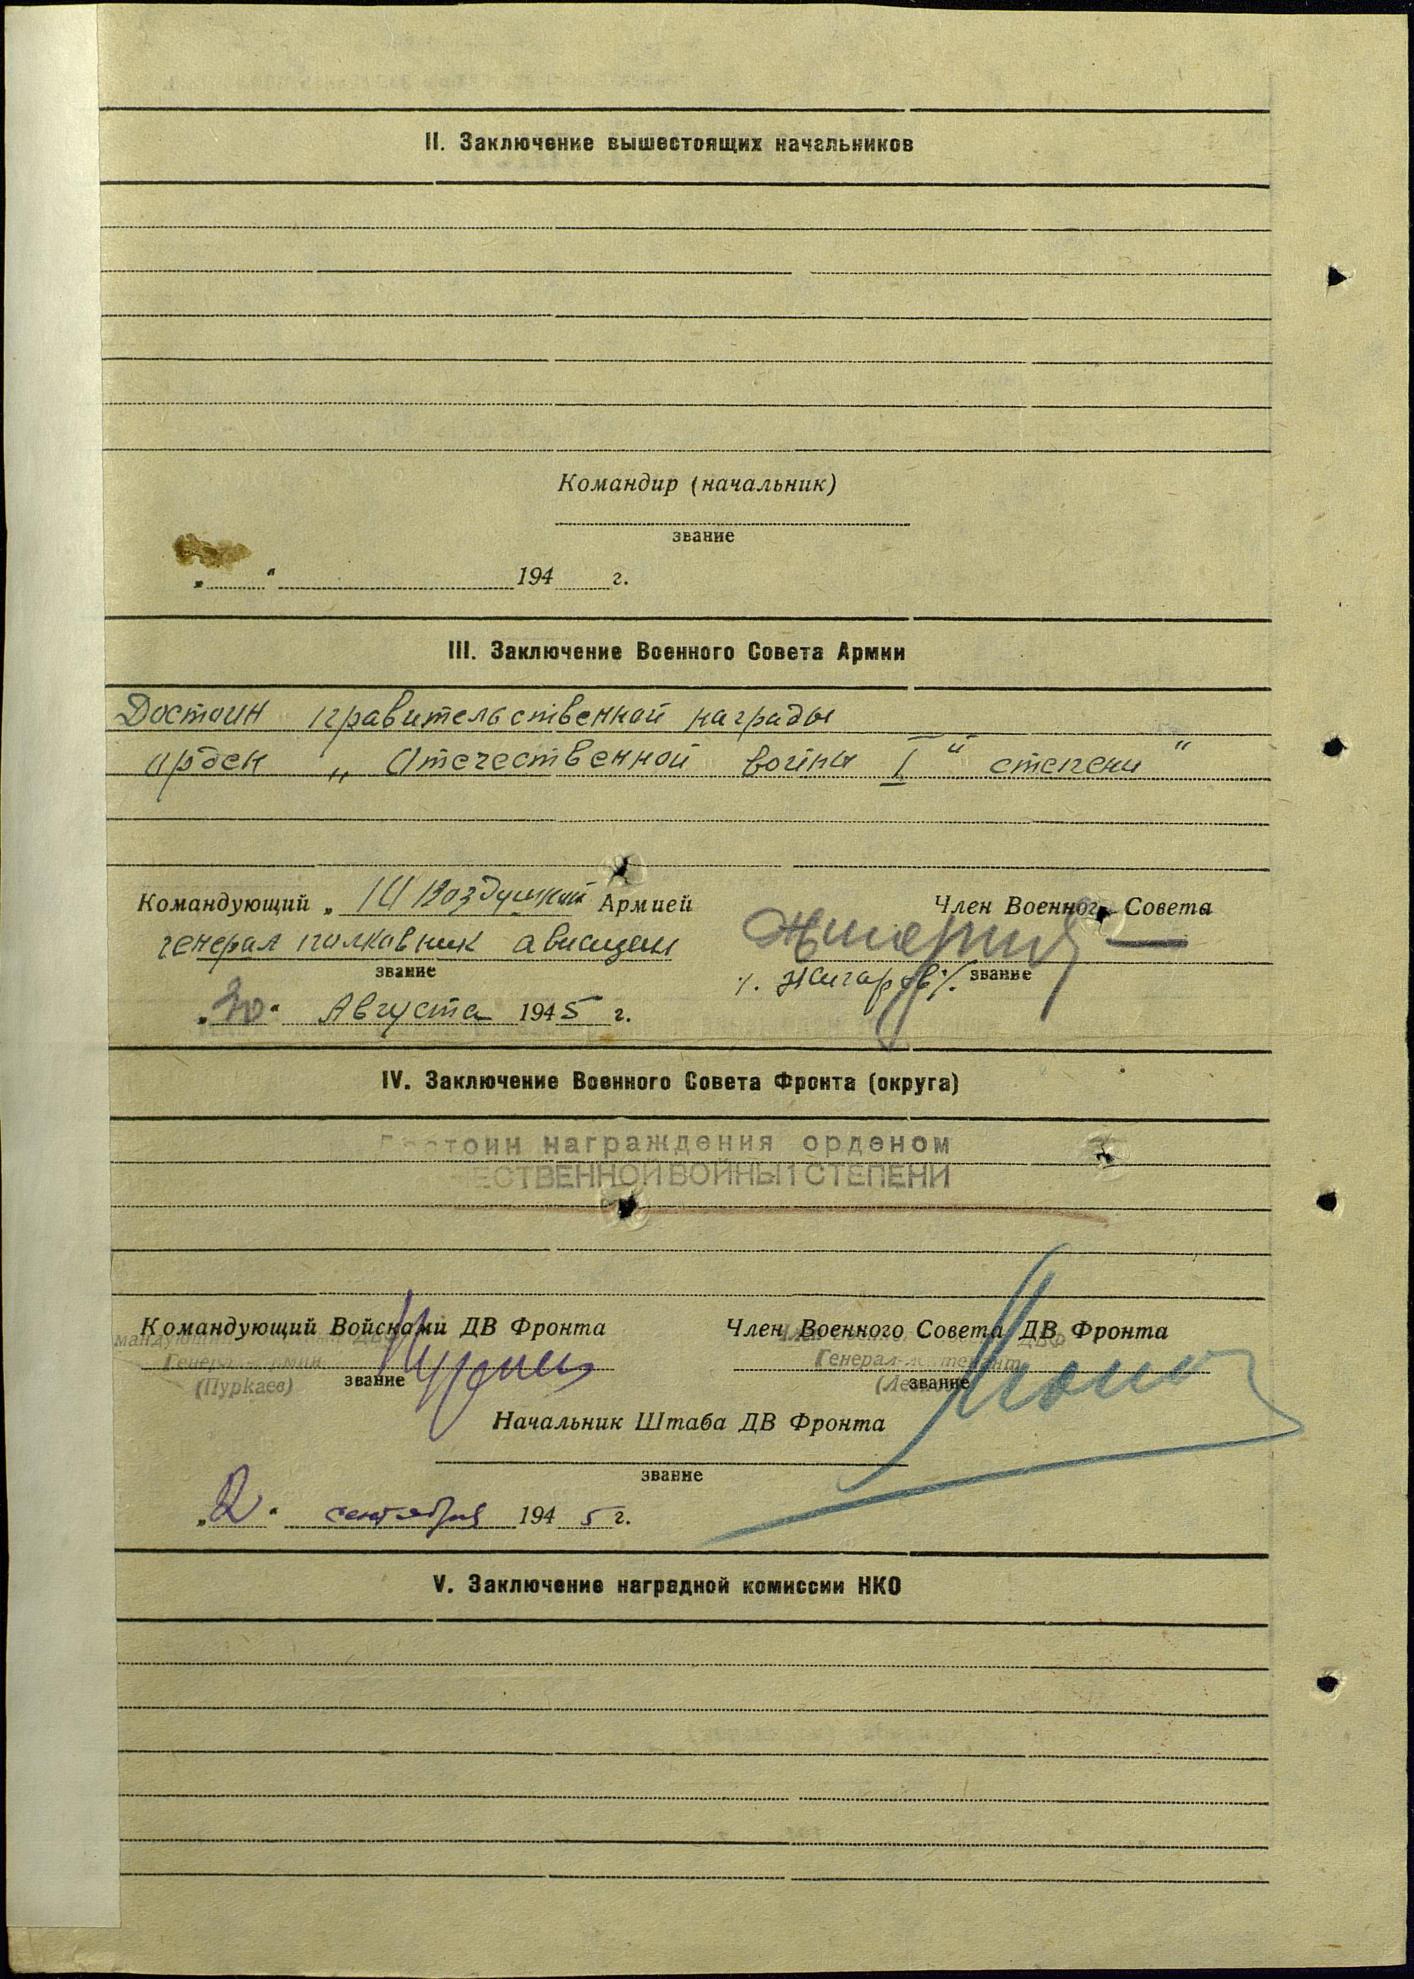 II. Заключение вышестоящих начальников
Командир (начальник)
звание
„ “ 194 г.
III. Заключение Военного Совета Армии
Достоин правительственной награды
орден „Отечественной войны I“ степени“
Командующий „ 10 Воздушной Армией
Член Военного Совета
генерал полковник авиации
звание
/. Жигарев/. звание
„30“ Августа 1945 г.
IV. Заключение Военного Совета Фронта (округа)
Достоин награждения орденом
ЕСТВЕННОЙ ВОЙНЫ 1 СТЕПЕНИ
Командующий Войсками ДВ Фронта
Член Военного Совета ДВ Фронта
Генерал-лейтенант
(Пуркаев) звание
звание
Начальник Штаба ДВ Фронта
звание
„2“ сентября 1945 г.
V. Заключение наградной комиссии НКО